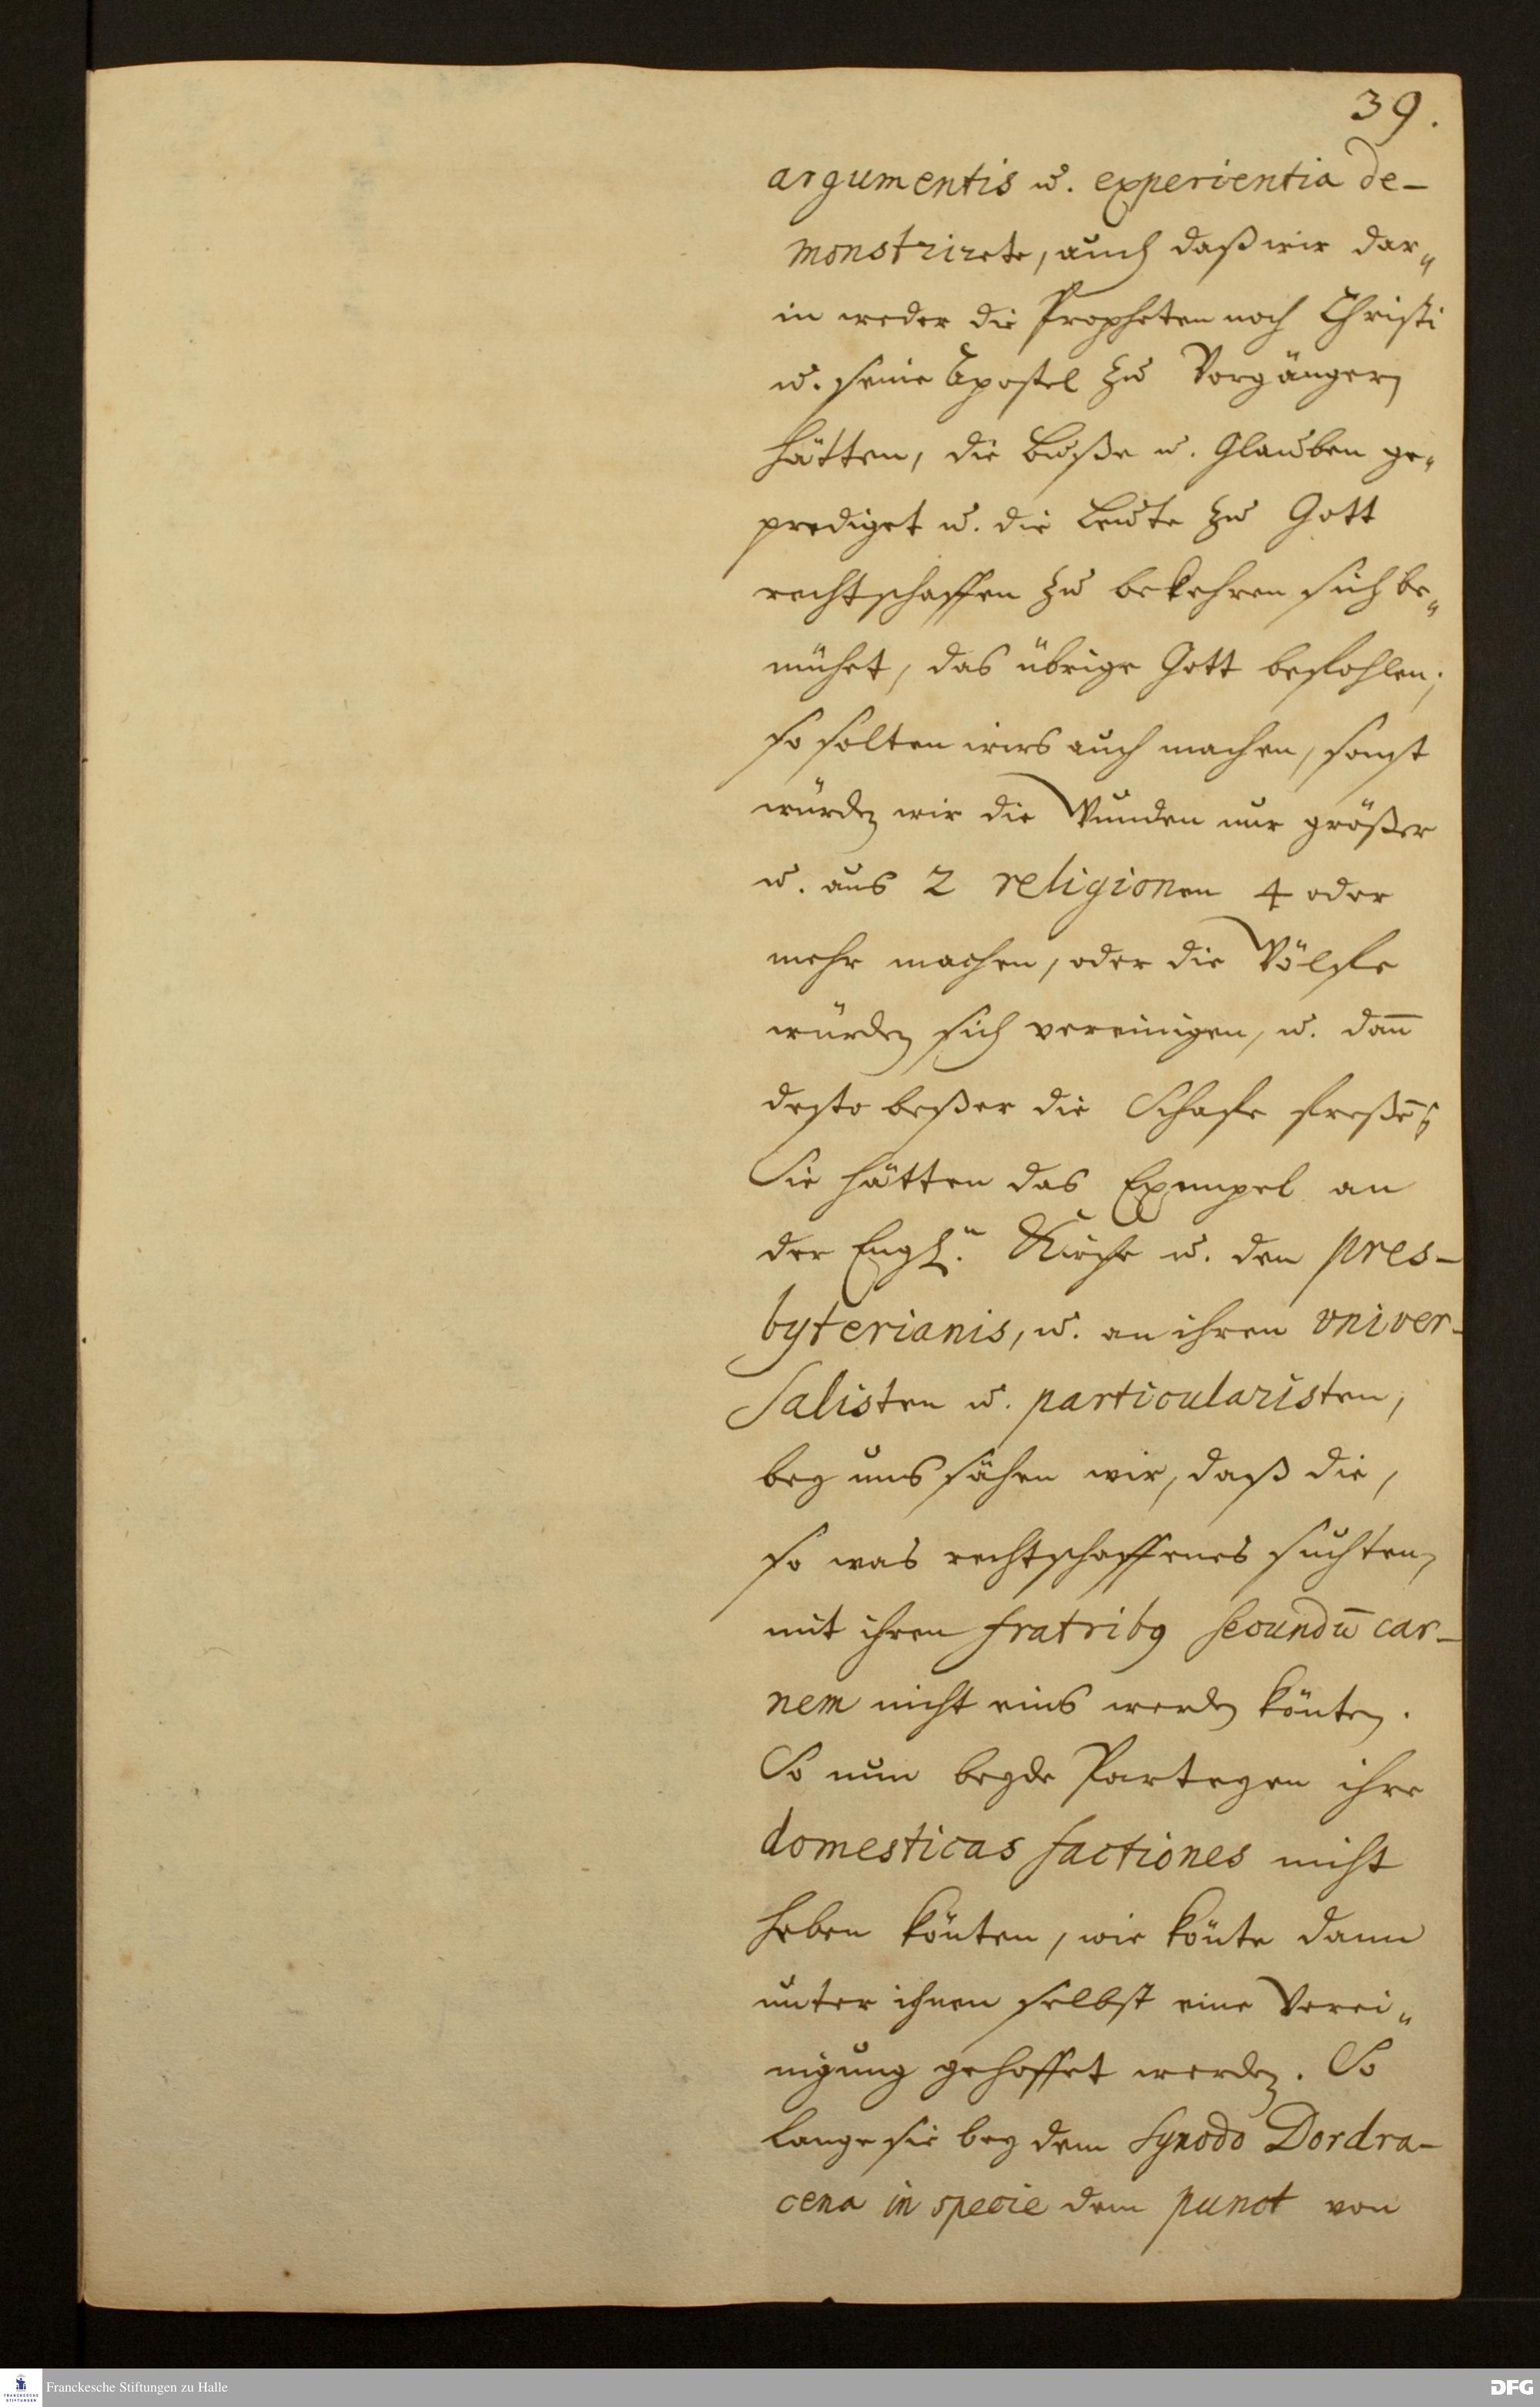 39.
argumentis u. experientia de-
monstrirete, auch daß wir dar„
in weder die Propheten noch Christi
u. seine Apostel zu Vorgängern
hätten, die Buße u. Glauben ge„
prediget u. die Leute zu Gott
rechtschaffen zu bekehren sich be„
mühet, das übrige Gott befohlen;
so solten wirs auch machen, sonst
würden wir die Wunden nur größer
u. aus 2 religionen 4 oder
mehr machen, oder die Wölffe
würden sich vereinigen, u. dañ
desto beßer die Schafe freßē
Sie hätten das Exempel an
der Engl.n Kirche u. den pres-
byterianis, u. an ihren vniver-
salisten u. particularisten,
bey uns sähen wir, daß die,
so was rechtschaffenes suchten,
mit ihren fratribꝯ secundū car-
nem nicht eins werden könten.
So nun beyde Parteyen ihre
domesticas factiones nicht
heben könten, wie könte dann
unter ihnen selbst eine Verei„
nigung gehoffet werden. So
lange sie bey dem Synodo Dordra-
cena in specie dem punct von
Franckesche Stiftungen zu Halle
FRANCKESCHE STIFTUNGEN
DFG